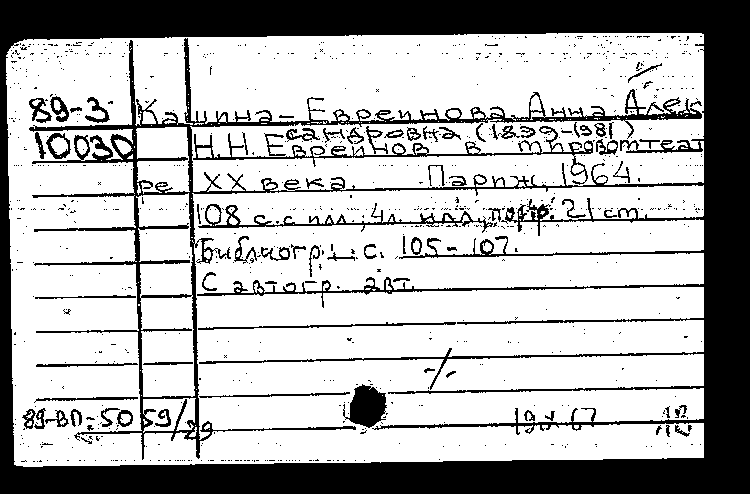 89-3 Кашина-Евреинова Анна Алек
сандровна (1899-1981)
10030 Н.Н. Евреинов в мировом театре
XX века. Париж, 1964.
108 с. с илл.; 4 л. илл., портр. 21 cm.
Библиогр.: с. 105-107.
С автогр. авт.
-/-
89-ВП:5059/29